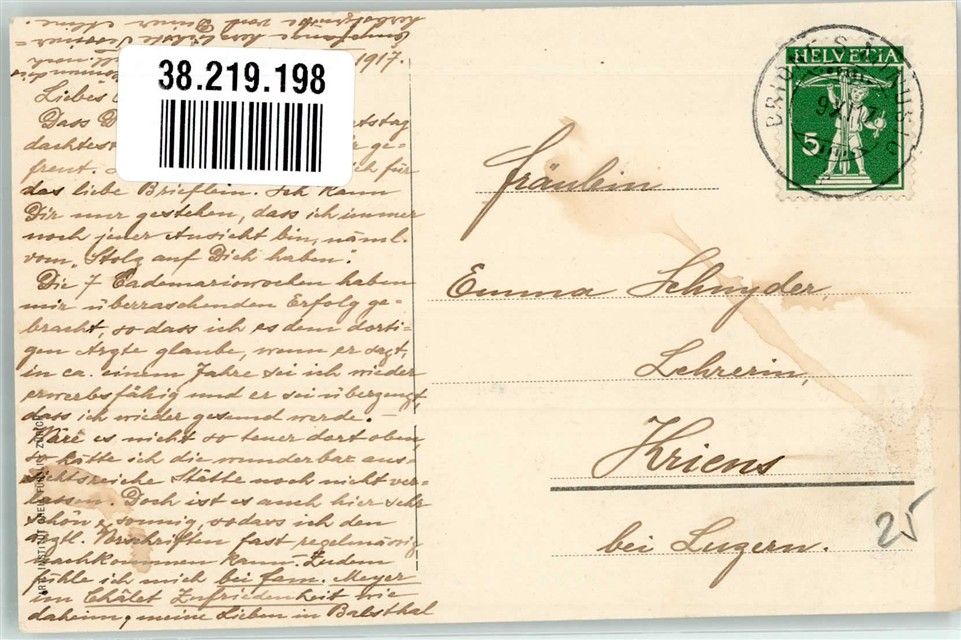 Empfange herzlichste
herbstgrüsse von Deiner Aline.
38.219.198
1917.
Liebes
Dass D tstag
dachtest r ge-
freut. ich für
das liebe Brieflein. Ich kann
Dir nur gestehen, dass ich immer
noch jener Ansicht bin, näml.
vom „Stolz auf Dich haben".
Die 7 Cademariowochen haben
mir überraschenden Erfolg ge-
bracht, so dass ich es dem dorti-
gen Arzte glaube, wenn er sagt,
in ca. einem Jahre sei ich wieder
erwerbsfähig und er sei überzeugt,
dass ich wieder gesund werde. –
Wäre es nicht so teuer dort oben,
so hätte ich die wunderbar aus-
sichtsreiche Stätte noch nicht ver-
lassen. Doch ist es auch hier sehr
schön & sonnig, sodass ich den
ärztl. Vorschriften fast regelmässig
nachkommen kann. Zudem
fühle ich mich bei Fam. Meyer
im Châlet Zufriedenheit wie
daheim, meine Lieben in Balsthal
HELVETIA
5
Fräulein
Emma Schnyder,
Lehrerin,
Kriens
bei Luzern.
25